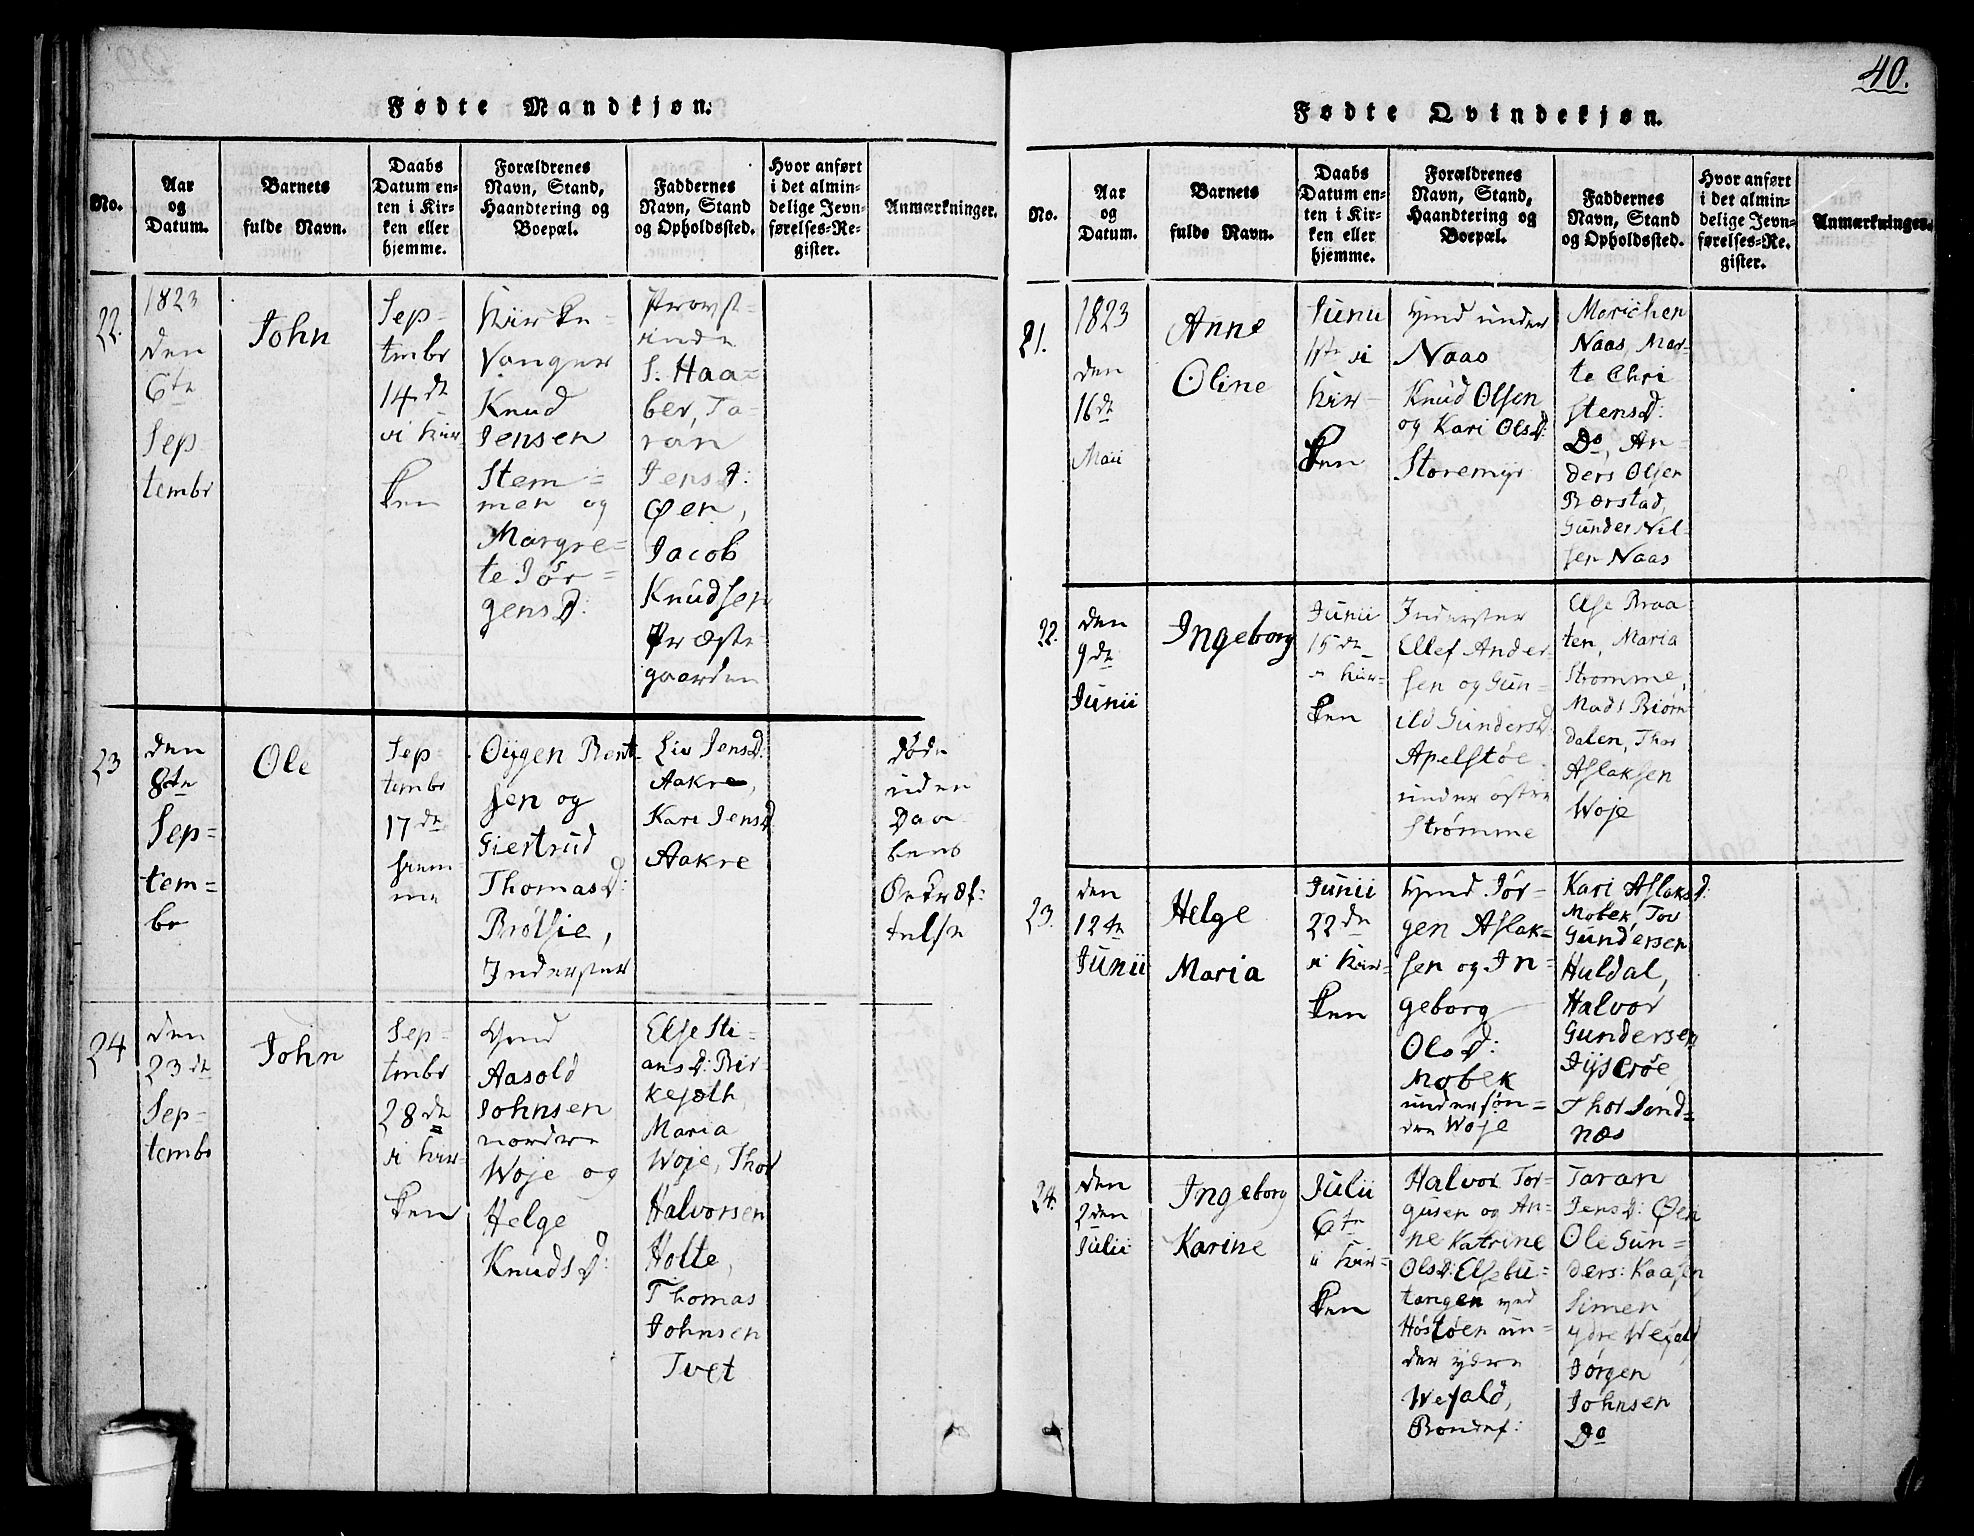 Fødte Mandkjøn.
No.
Aar
og
Datum.
Barnets
fulde Navn.
Daabs
Datum en-
ten i Kir-
ken eller
hjemme.
Forældrenes
Navn, Stand,
Haandtering og
Boepæl.
Faddernes
Navn, Stand
og Opholdssted.
Hvor anført
i det almin-
delige Jevn-
førelses-Re-
gister.
Anmærkninger.
22.
1823
den
6te
Sep
tembr
John
Sep-
tembr
14de
i Kir
ken
Kirke-
Sanger
Knud
Jensen
Stem=
men og
Margre=
te Jör=
gensD:
Provst-
inde
S. Haa=
ber, Ta-
ran
JensD:
Øen,
Jacob
Knudsen
Præste-
gaarden
23
den
8de
Sep=
tem=
br
Ole
Sep-
tembr
17de
hjem-
me
Oÿgen Bent-
sen og
Giertrud
ThomasD:
Brölsie,
Inderster
Liv JensD:
Aakre,
Kari JensD
Aakre
döde
uden
Daa-
bens
Bekræf-
telse
24
den
23de
Sep-
tembr
John
Sep-
tembr
28de
i Kir-
ken
Gmd
Aasold
Johnsen
nordre
Woje og
Helge
KnudsD:
Else Sti-
ansD: Bir
kejøth
Maria
Woje, Thor
Halvorsen
Holte,
Thomas
Johnsen
Tvet
40.
Fødte Qvindekjøn.
No.
Aar
og
Datum.
Barnets
fulde Navn.
Daabs
Datum en-
ten i Kir-
ken eller
hjemme.
Forældrenes
Navn, Stand,
Haandtering og
Boepæl.
Faddernes
Navn, Stand
og Opholdssted.
Hvor anført
i det almin-
delige Jevn-
førelses-Re-
gister.
Anmærkninger.
21.
1823
den
16de
Maii
Anne
Oline
Junii
1ste i
Kir-
ken
Hmd under
Naas
Knud Olsen
og Kari OlsD:
Storemyr
Marichen
Naas, Mar-
te Chri
stensD:
Do, An-
ders Olsen
Bærstad,
Gunder Nil-
sen Naas
22.
den
9de
Junii
Ingeborg
Junii
15de
i Kir-
ken
Inderster
Ellef Ander-
sen og Gun-
ild GundersD
Apelstøe
under østre
Strømme
Else Braa-
ten, Maria
Strømme,
Mads Biørn
dalen, Thor
Aslaksen
Woje
23.
den
12te
Junii
Helge
Maria
Junii
22de
i Kir-
ken
Hmd Jör-
gen Aslak=
sen og In=
geborg
OlsD:
Mobek
under søn=
dre Woje
Kari AslaksD:
Mobek, Tor
Gundersen
Huldal,
Halvor
Gundersen
Thor Sand=
næs
24.
den
2den
Julii
Ingeborg
Karine
Julii
6te
i Kir-
ken
Halvor Tor-
gusen og An-
ne Katrine
OlsD: Elsebu=
tangen ved
Höstöen un=
der ydre
Wefald,
Bondef:
Taran
JensD: Øen
Ole Gun=
ders: Kaasen
Simen
ydre Wefald
Jørgen
Johnsen
Do